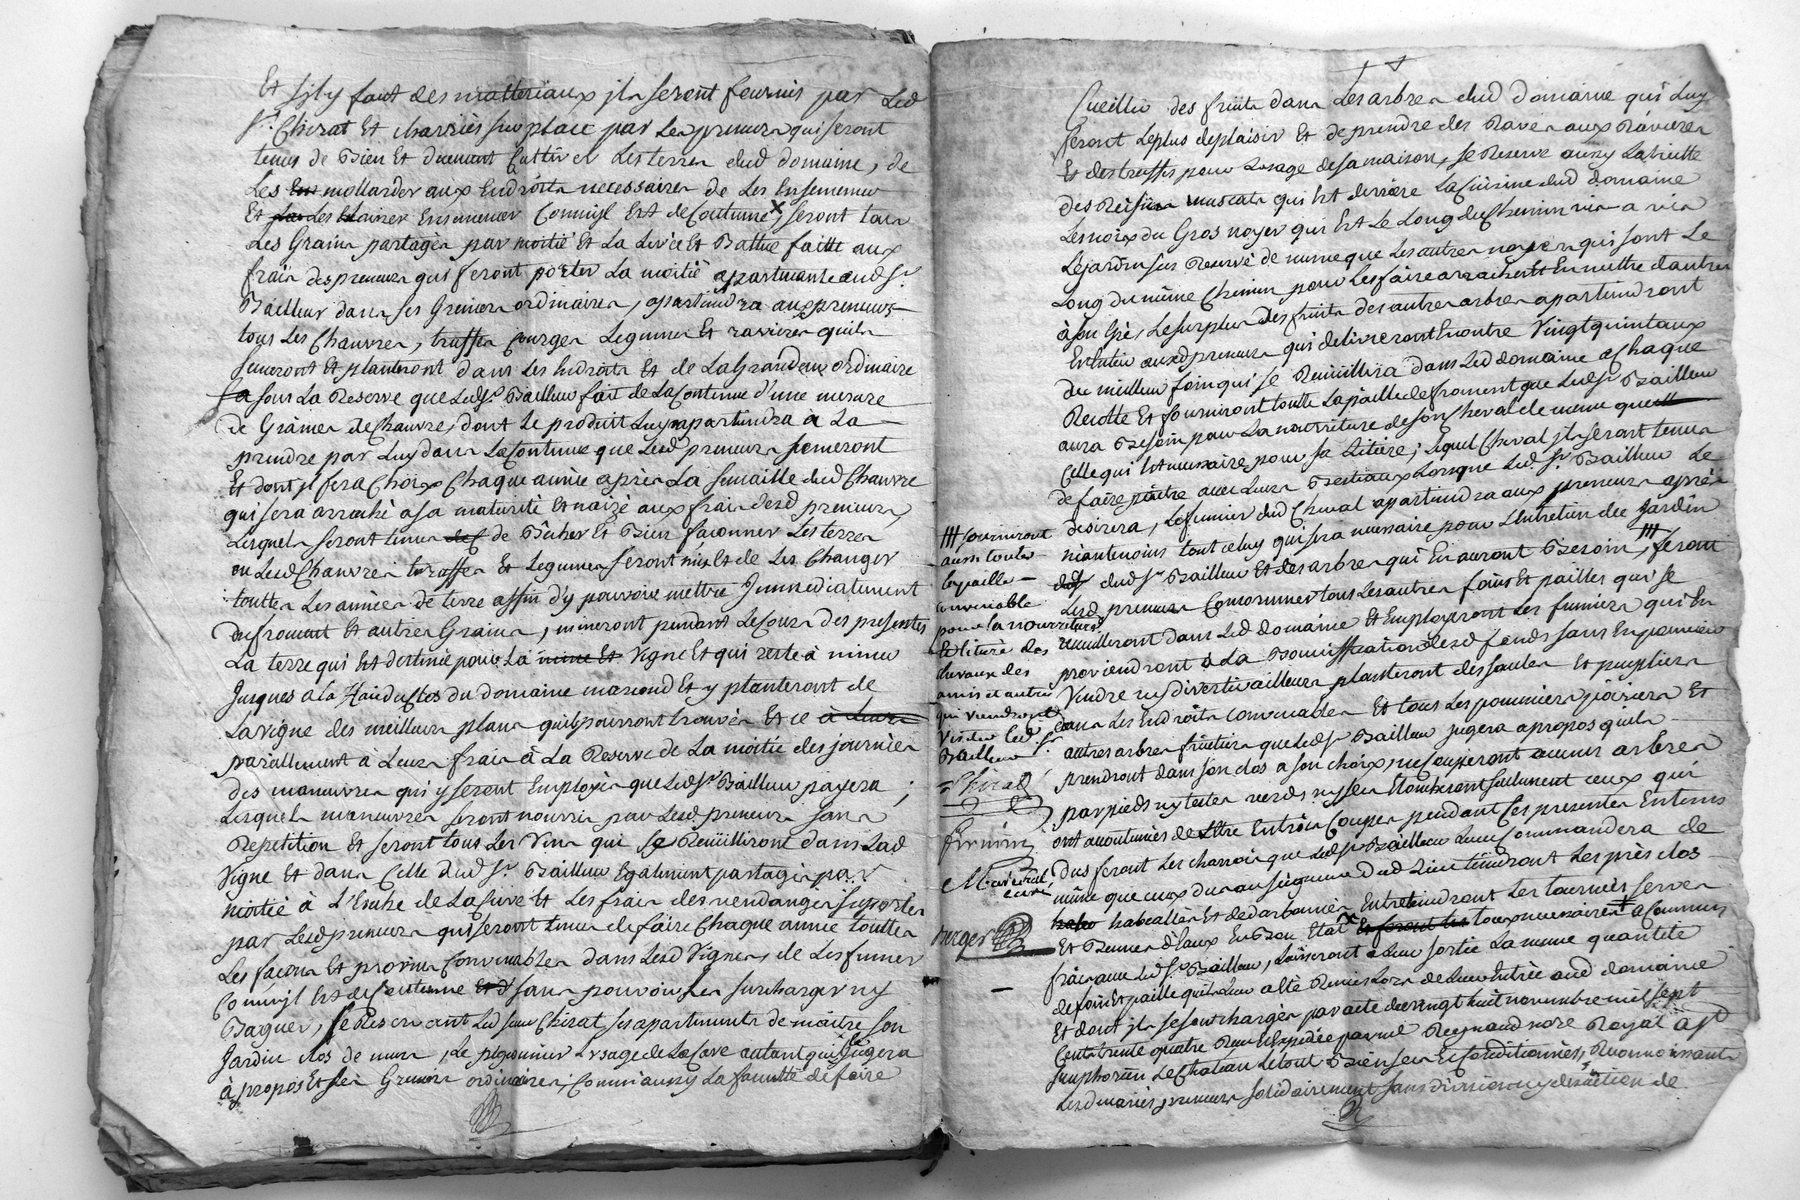 Et sil y faut des matteriaux jls seront fournis par Led
Sr. Chirat Et charriés sur place par Les preneurs qui seront
tenus de Bien Et duement Cultiver Les terres dud domaine, de
Les mollarder aux Endroits necessaires de Les Ensemencer
Et Les Laisser Ensemencer Comm'jl Est de Coutume x, seront tous
Les Grains partagés par moitié Et La Levée Et Battue faitte aux
frais des preneurs qui feront porter La moitié apartenante aud Sr.
Bailleur dans ses Greniers ordinaires, apartiendra aux preneurs
tous Les Chanvres, truffes Courges Legumes Et ravieres quils
semeront Et planteront dans Les Endroits Et de La Grandeur ordinaire
sous La Reserve que Led Sr. Bailleur fait de La Contenue d'une mesure
de Graines de Chanvre, dont Le produit Luy apartiendra à La
prendre par Luy dans La Contenue que Lesd preneurs semeront
Et dont jl fera Choix Chaque année après La semaille dud Chanvre
qui sera arraché a sa maturité Et naizé aux frais desd preneurs,
Lesquels seront tenus de Bêcher Et Bien façonner Les terres
ou Lesd Chanvres truffes Et Legumes seront mis Et de Les Changer
touttes Les années de terre affin d'y pouvoir mettre Jmmediatement
du froment Et autres Grains, mineront pendant Le Cours des presentes
La terre qui Est destinée pour La Vigne Et qui reste à miner
Jusques a la du Clos du domaine marcond Et y planteront de
La vigne des meilleurs plans quils pourront trouver Et ce à Leurs
parallement à Leurs frais à La Reserve de La moitié des journées
des manœuvres qui y seront Employés que Led Sr Bailleur payera;
Lesquels manœuvres seront nourris par Lesd preneurs sans
Repetition Et seront tous Les Vins qui se Reuilliront dans Lad
Vigne Et dans Celle dud Sr. Bailleur Egalement partagés par
moitié à L'Enche de La Cuve Et Les frais des vendanges suportés
par Lesd preneurs qui seront tenus de faire Chaque année touttes
Les façons Et provins Convenables dans Lesd Vignes, de Les fumer
Comm'jl Est de Coutume sans pouvoir Les surcharger ny
Baguer, se Reservant Led sieur Chirat ses apartements de maitre, son
Jardin clos de murs, Le pigeonnier Lusage de La Cave autant qu'jl Jugera
à propos Et ses Greniers ordinaires, Comm'aussy La faculté de faire
Cueillir des fruits dans Les arbres dud domaine qui Luy
feront Le plus de plaisir Et de prendre des Raves aux Ravieres
Et des truffes pour Lusage de sa maison, se Reserve aussy La
des Reisins muscats qui Est derriere La Cuisine dud domaine
Les noix du Gros noyer qui Est Le Long du Chemin vis a vis
Le jardin sus Reservé de même que Les autres noyers qui sont Le
Long du même Chemin pour Les faire arracher Et En mettre d'autres
à son Gré, Le surplus des fruits des autres arbres apartiendront
En Entier auxd preneurs qui delivreront Enoutre Vingt quintaux
du meilleur foin qui se Reuillira dans Led domaine a Chaque
Recolte Et fourniront toutte La paille de froment que Led Sr Bailleur
aura Besoin pour La nourriture de son Cheval de meme que
Celle qui Est necessaire pour sa Litiere; Lequel Cheval jls seront tenus
de faire paitre avec Leurs Bestiaux Lorsque Led Sr. Bailleur Le
desirera, Le fumier dud Cheval apartiendra aux preneurs après
neantmoins tout celuy qui sera necessaire pour L'Entretien du Jardin
dud Sr Bailleur Et des arbres qui En auront Besoin, # feront
Lesd preneurs Consommer tous Les autres foins Et pailles qui se
reuilleront dans Led domaine Et Employront Les fumiers qui En
proviendront à La Bonniffication desd fonds sans En pouvoir
Vendre ny divertir ailleurs planteront des saules Et peupliers
dans Les Endroits Convenables Et tous Les pommiers poiriers Et
autres arbres fruitiers que Led Sr Bailleur jugera apropos quils
prendront dans son clos a son choix, ne Couperont aucuns arbres
par pieds ny testes verds ny secs Ebrancheront seulement ceux qui
ont accoutumés de L'être Entrois Coupes pendant Ces presentes En tems
dus feront Les charrois que Led Sr Bailleur Leur Commandera de
même que ceux du au seigneur dud Lieu tiendront Les prés clos
habeallés Et dedarbonnés Entretiendront Les tournées serves
Et Beunes d'Eaux En Bon Etat x toux necessaires + a Communs
frais avec Led Sr. Bailleur, Laisseront a Leur sortie La meme quantité
de foin Et paille quils Leur a été Remis Lors de Leur Entrée aud domaine
Et dont jls se sont chargés par acte du vingt huit novembre mil sept
Cents trente quatre Reçu Et Expedié par me Reynaud nore Royal à St
Simphorien Le Chateau Le tout Bien sec Et Conditionnés, Reconnoissants
Lesd mariés preneurs solidairement sans division ny discution de
# fourniront
aussi toutes
les pailles
convenable
pour la nourriture
Et litière des
chevaux des
amis et autres
qui viendront
visiter led Sr
Bailleur
Chirat
Firmin
Marechal
curé
Burger